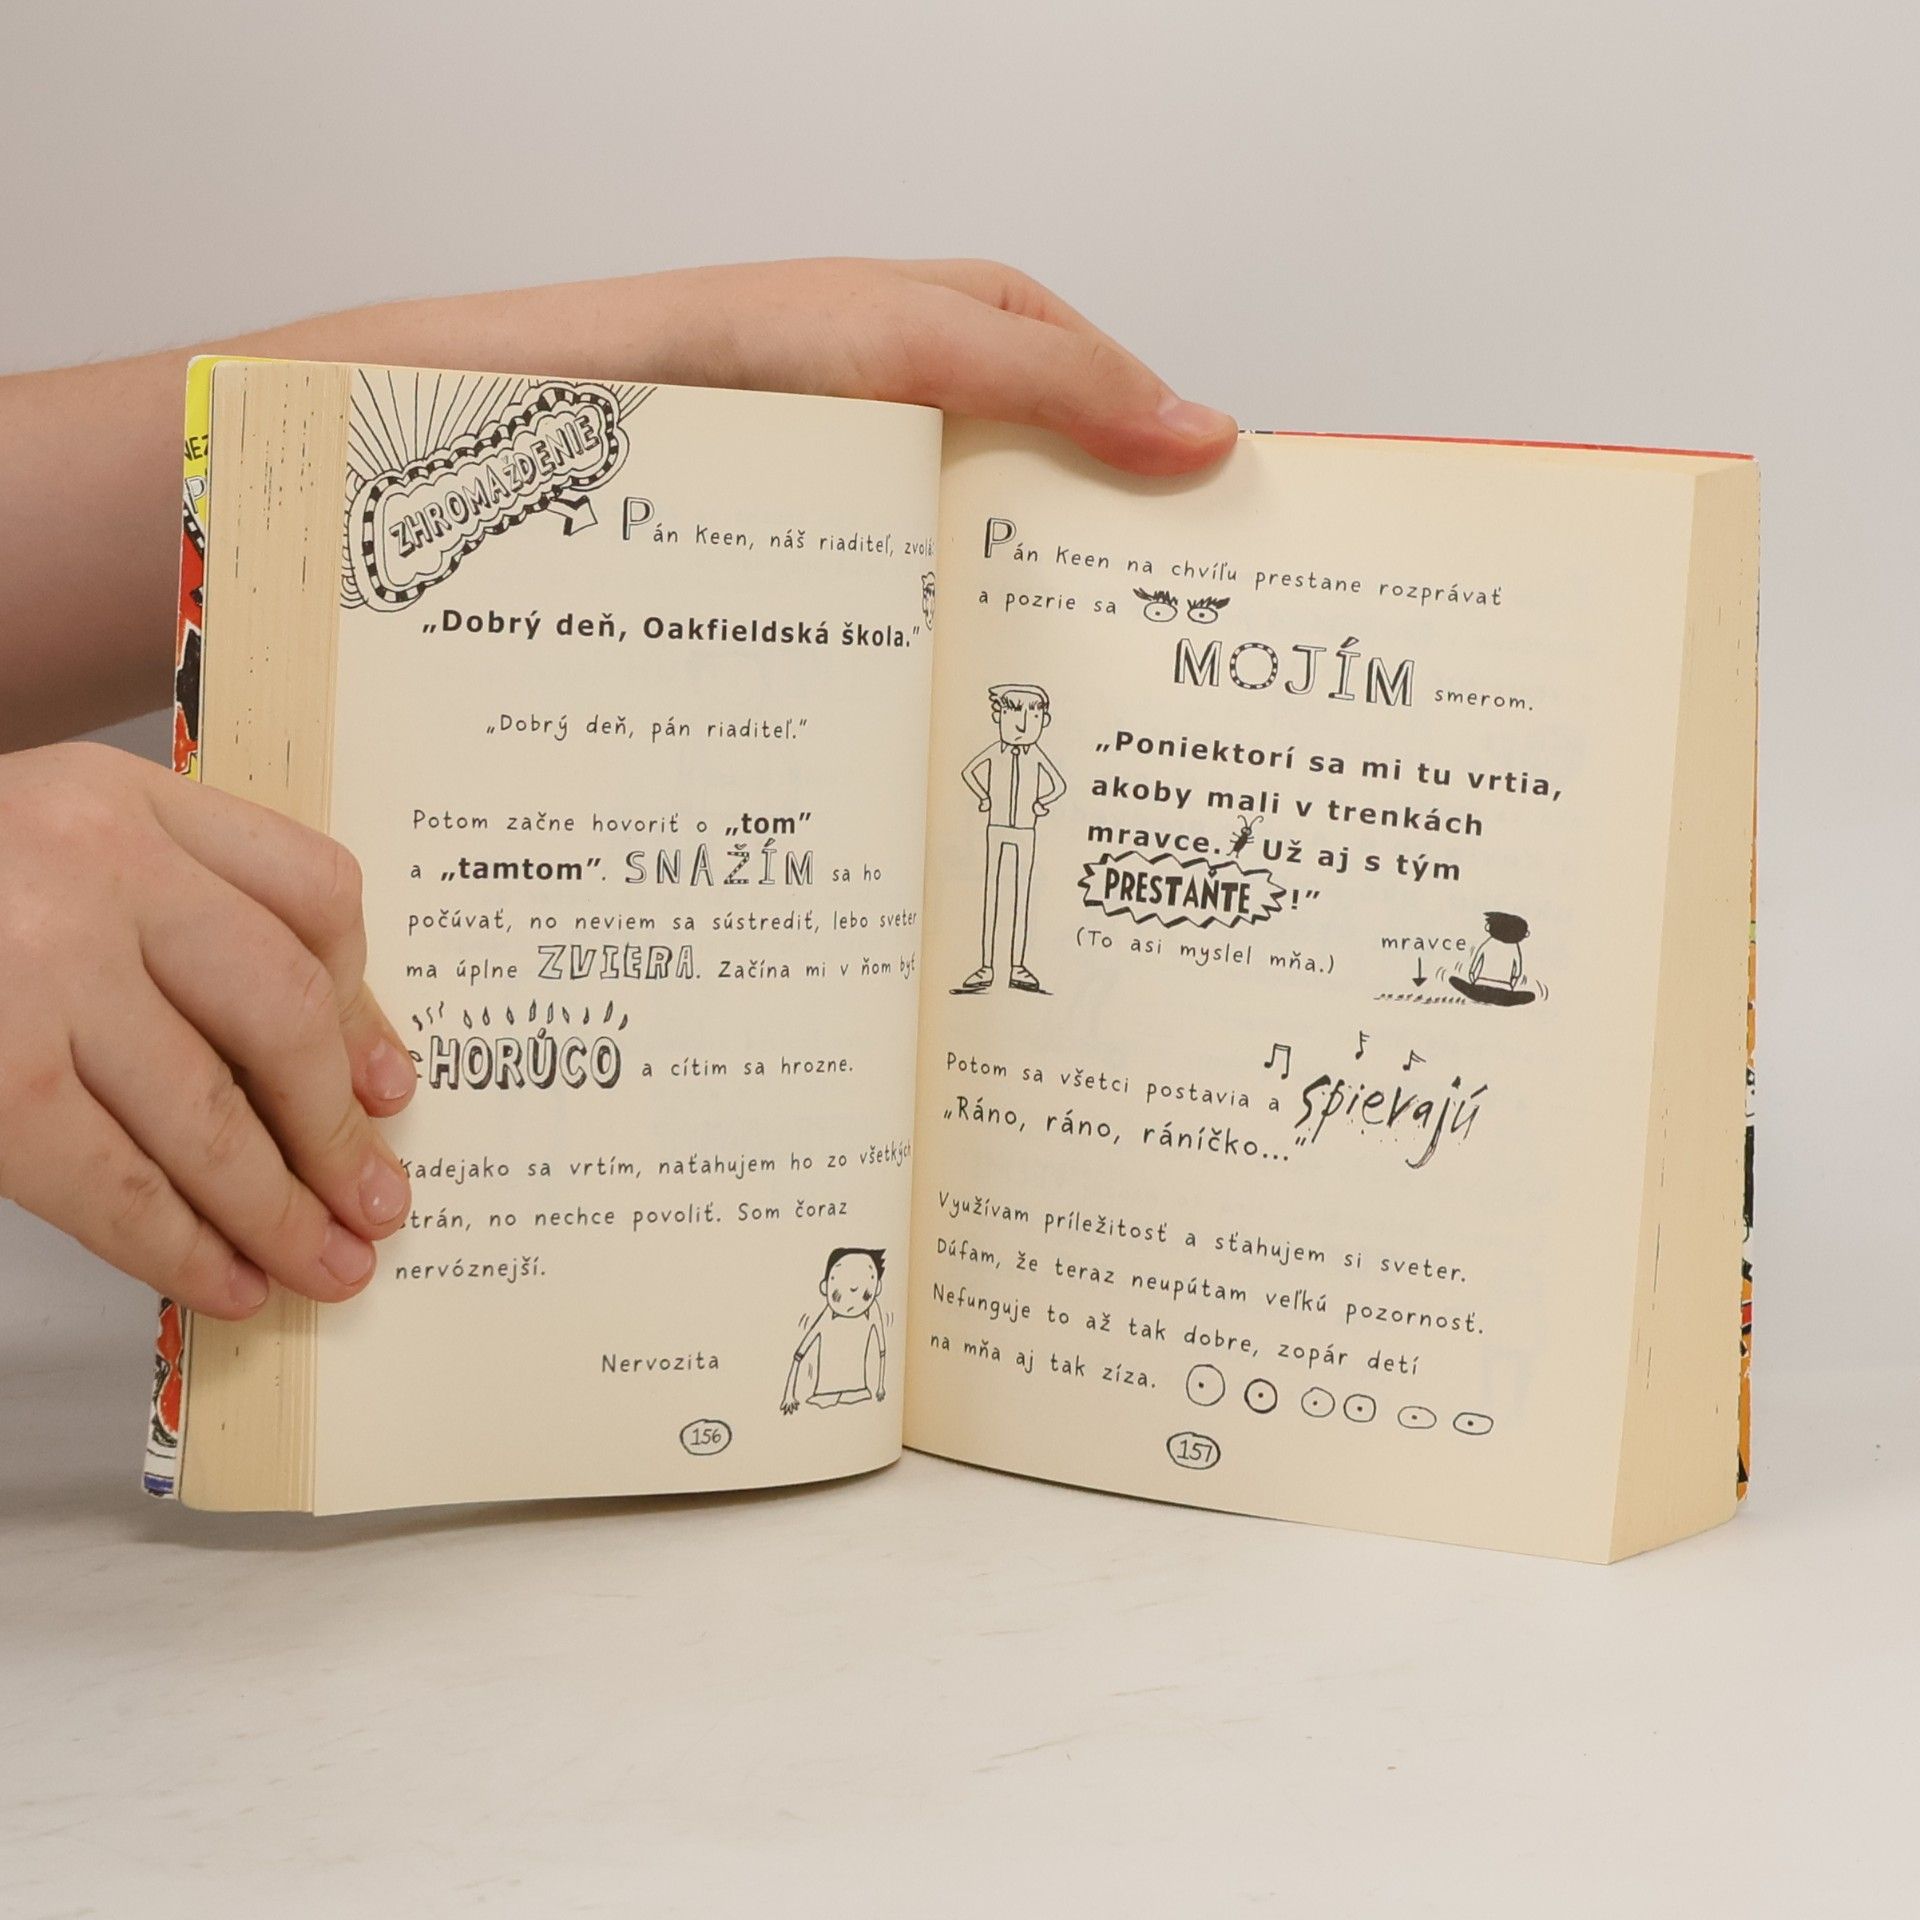 ZHROMAŽDENIE
Pán Keen, náš riaditeľ, zvolá:
„Dobrý deň, Oakfieldská škola."
„Dobrý deň, pán riaditeľ."
Potom začne hovoriť o „tom"
a „tamtom". SNAŽÍM sa ho
počúvať, no neviem sa sústrediť, lebo sveter
ma úplne ZVIERA. Začína mi v ňom byť
HORÚCO a cítim sa hrozne.
Kadejako sa vrtím, naťahujem ho zo všetkých
strán, no nechce povoliť. Som čoraz
nervóznejší.
Nervozita
156
Pán Keen na chvíľu prestane rozprávať
a pozrie sa
MOJÍM smerom.
„Poniektorí sa mi tu vrtia,
akoby mali v trenkách
mravce. Už aj s tým
PRESTAŇTE!"
(To asi myslel mňa.)
mravce
Potom sa všetci postavia a spievajú
„Ráno, ráno, ráníčko..."
Využívam príležitosť a sťahujem si sveter.
Dúfam, že teraz neupútam veľkú pozornosť.
Nefunguje to až tak dobre, zopár detí
na mňa aj tak zíza.
157